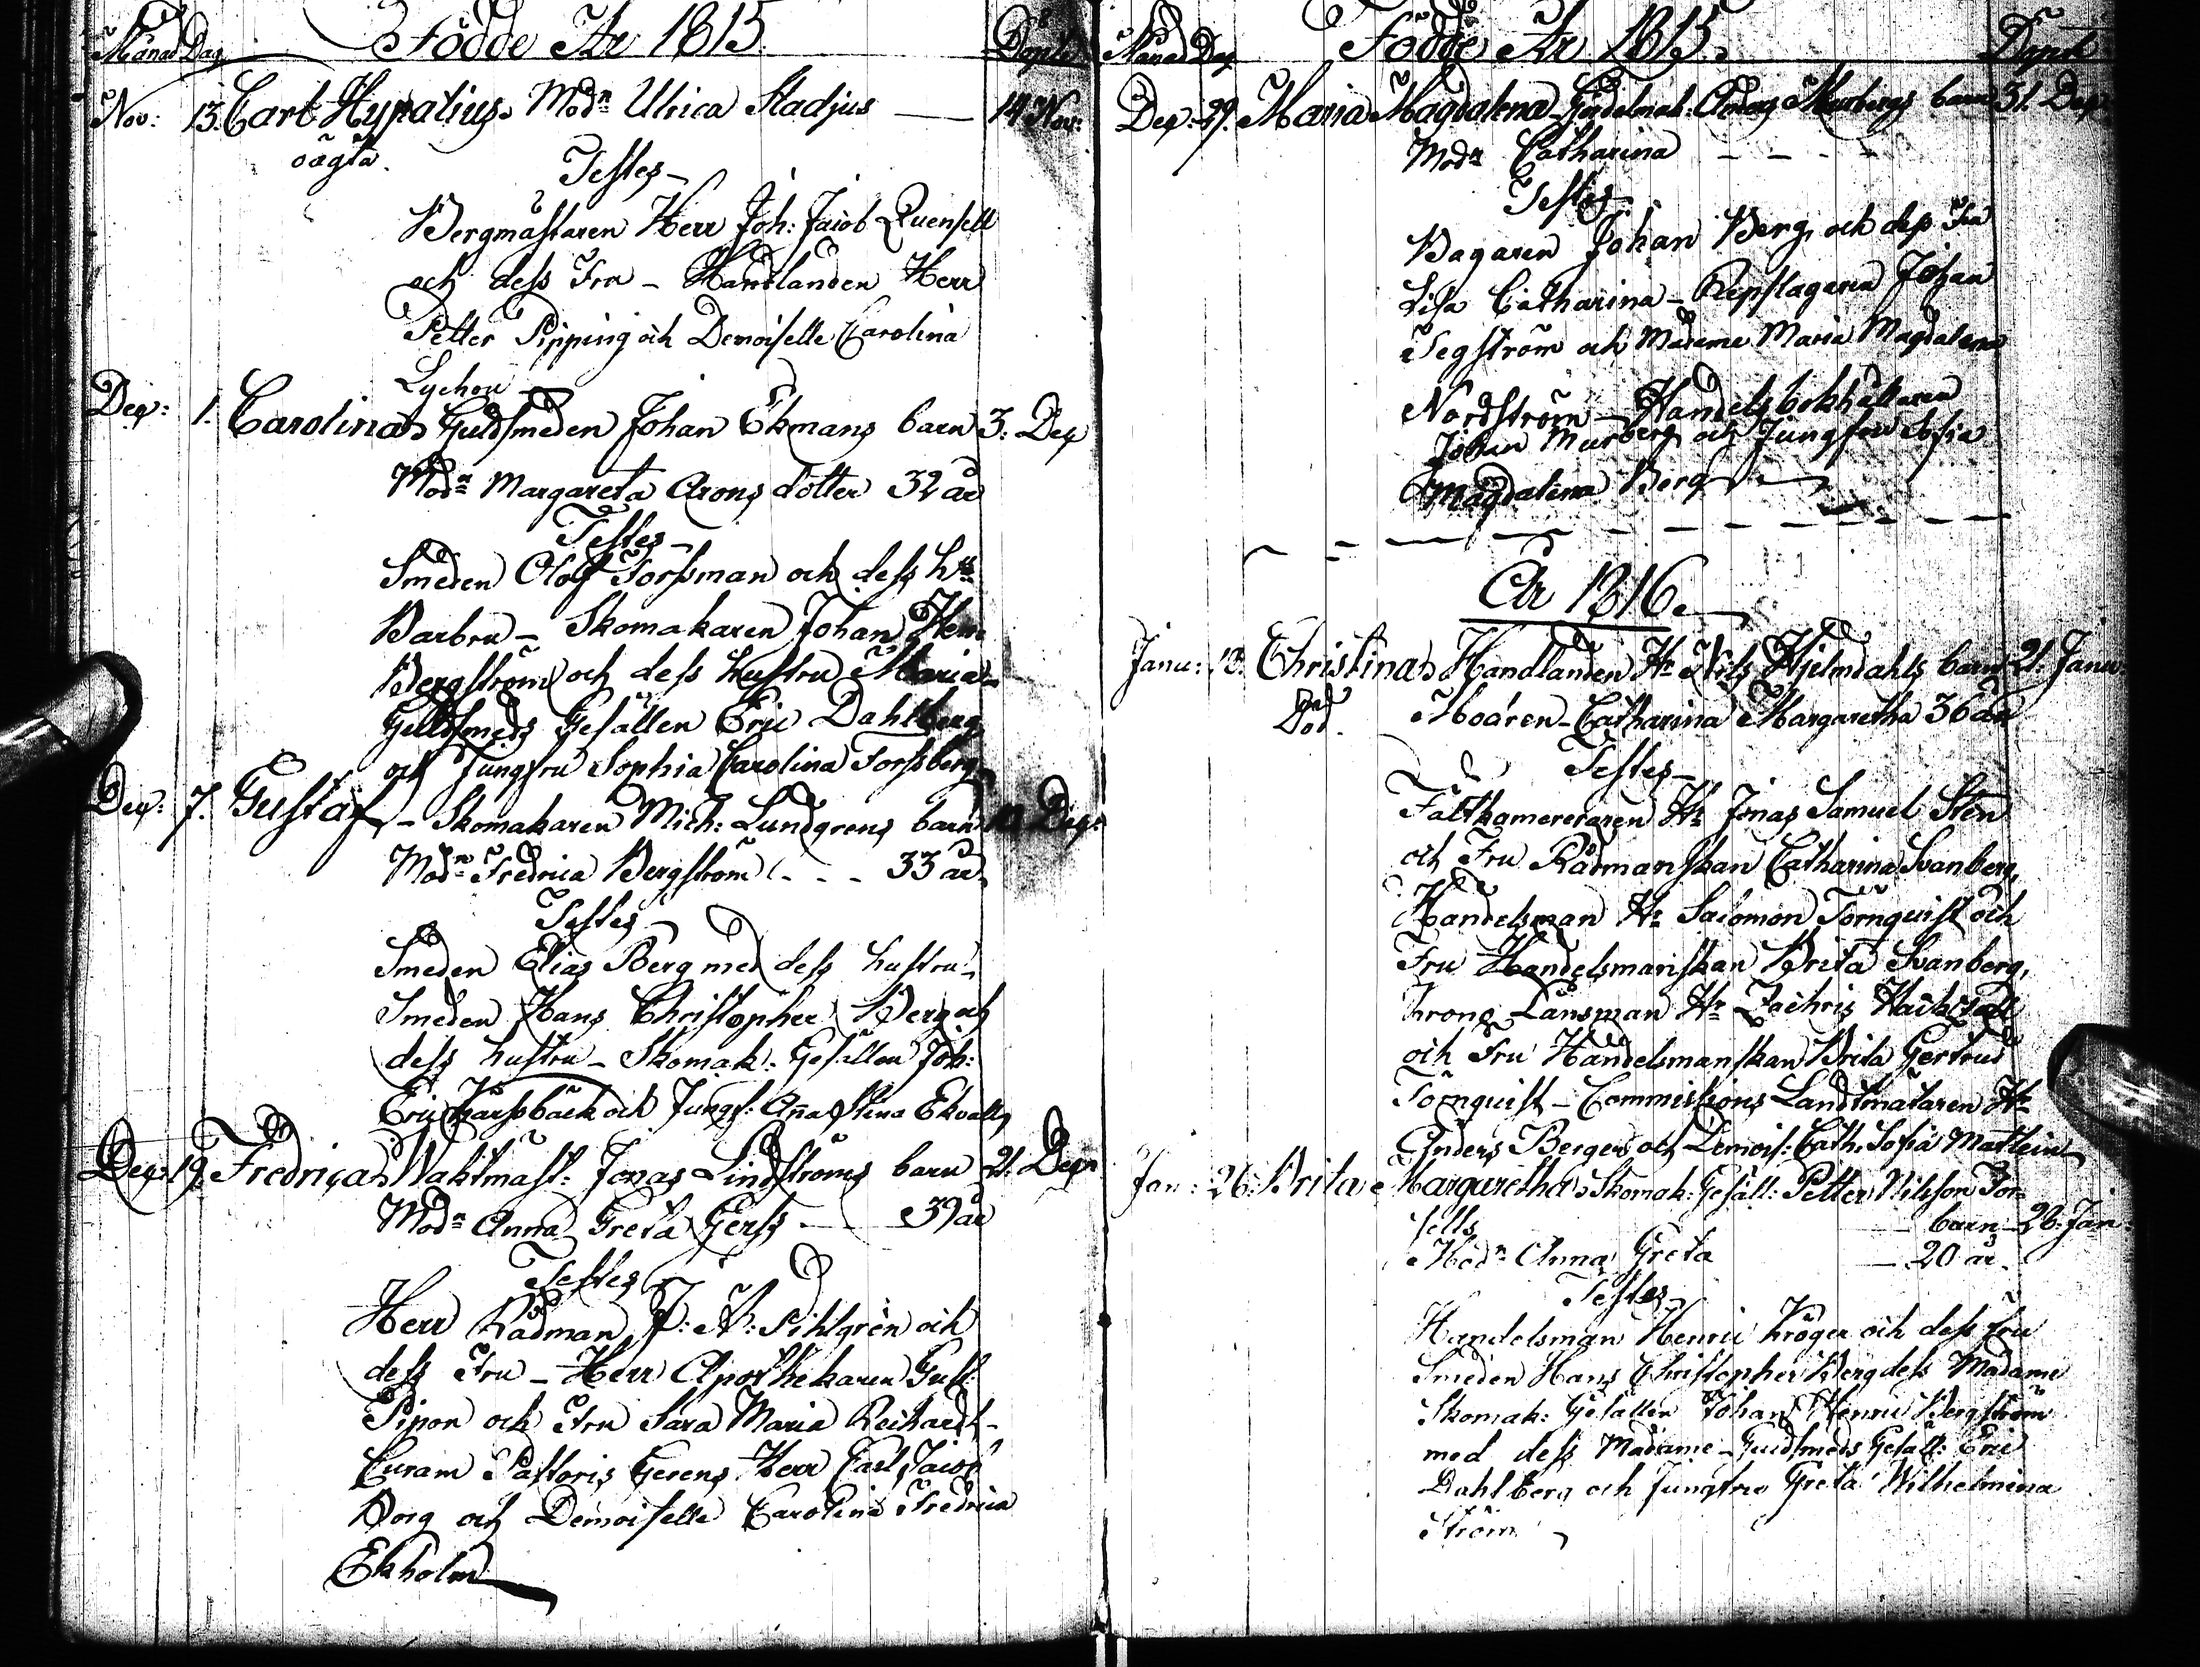 Månad Dag Födde År 1815. Döpte
Nov: 13. Carl Hypatius. Modn Ulrica Stadjus — 14 Nov:
oägta.
Testes
Bergmästaren Herr Joh: Jacob Quensell
och dess Fru – Handlanden Herr
Petter Pipping och Demoiselle Carolina
Lychou
Dec: 1. Carolina Guldsmeden Johan Ekmans barn 3. Dec
Modn Margareta Arons dotter 32 år
Testes
Smeden Olof Forssman och dess hu
Barbru – Skomakaren Johan Hen:
Bergström och dess hustru Maria –
Guldsmeds Gesällen Eric Dahlberg
och Jungfru Sophia Carolina Forssberg
Dec: 7. Gustaf – Skomakaren Mich: Lundgrens barn Dec:
Modn Fredrica Bergström - - - 33 år
Testes
Smeden Elias Berg med dess hustru –
Smeden Hans Christopher Berg och
dess hustru – Skomak: Gesällen Joh:
Eric och Jungf: Anna Stina Ekvall
Dec: 19. Fredrica Waktmäst: Jonas Lindströms barn 21. Dec:
Modn Anna Greta Gerss — 39 år
Testes
Herr Rådman P: A: Pihlgren och
dess Fru – Herr Apothekaren Gust:
Pipon och Fru Sara Maria Reihardt –
Curam Pastoris Gerens Herr Carl Jacob
Borg och Demoiselle Carolina Fredrica
Ekholm
Månad Dag Födde År 1815. Döpte
Dec: 29. Maria Magdalena Anders Murbergs barn 31. Dec:
Modn Catharina - - - -
Testes
Bagaren Johan Berg och dess Fru
Lisa Catharina – Repslagaren Johan
Segström och Madame Maria Magdalena
Nordström – Handels bokhållaren
Johan Murberg och Jungfru Sofia
Magdalena Berg
År 1816.
Janu: 13. Christina Handlanden Hr Nils Hjelmdahls barn 21. Janu
Död. Modren – Catharina Margaretha 36 år
Testes
Fältkamereraren Hr Jonas Samuel Sten
och Fru Rådmanskan Catharina Svanberg,
Handelsman Hr Salomon Törnquist och
Fru Handelsmanskan Brita Svanberg,
Krono Länsman Hr Zachris
och Fru Handelsmanskan Brita Gertrud
Törnquist – Commissions Landtmätaren Hr
Anders Berger och Demois: Cath: Sofia Mathein
Jan: 26. Brita Margaretha, Skomak: Gesäll: Petter Nilsson For-
sells barn 28. Jan:
Modn Anna Greta — 20 år.
Testes
Handelsman Henric Kröger och dess Fru
Smeden Hans Christopher Berg dess Madame
Skomak: Gesällen Johan Henric Bergström
med dess Madame – Guldsmeds Gesäll: Eric
Dahlberg och Jungfru Greta Wilhelmina
Ström